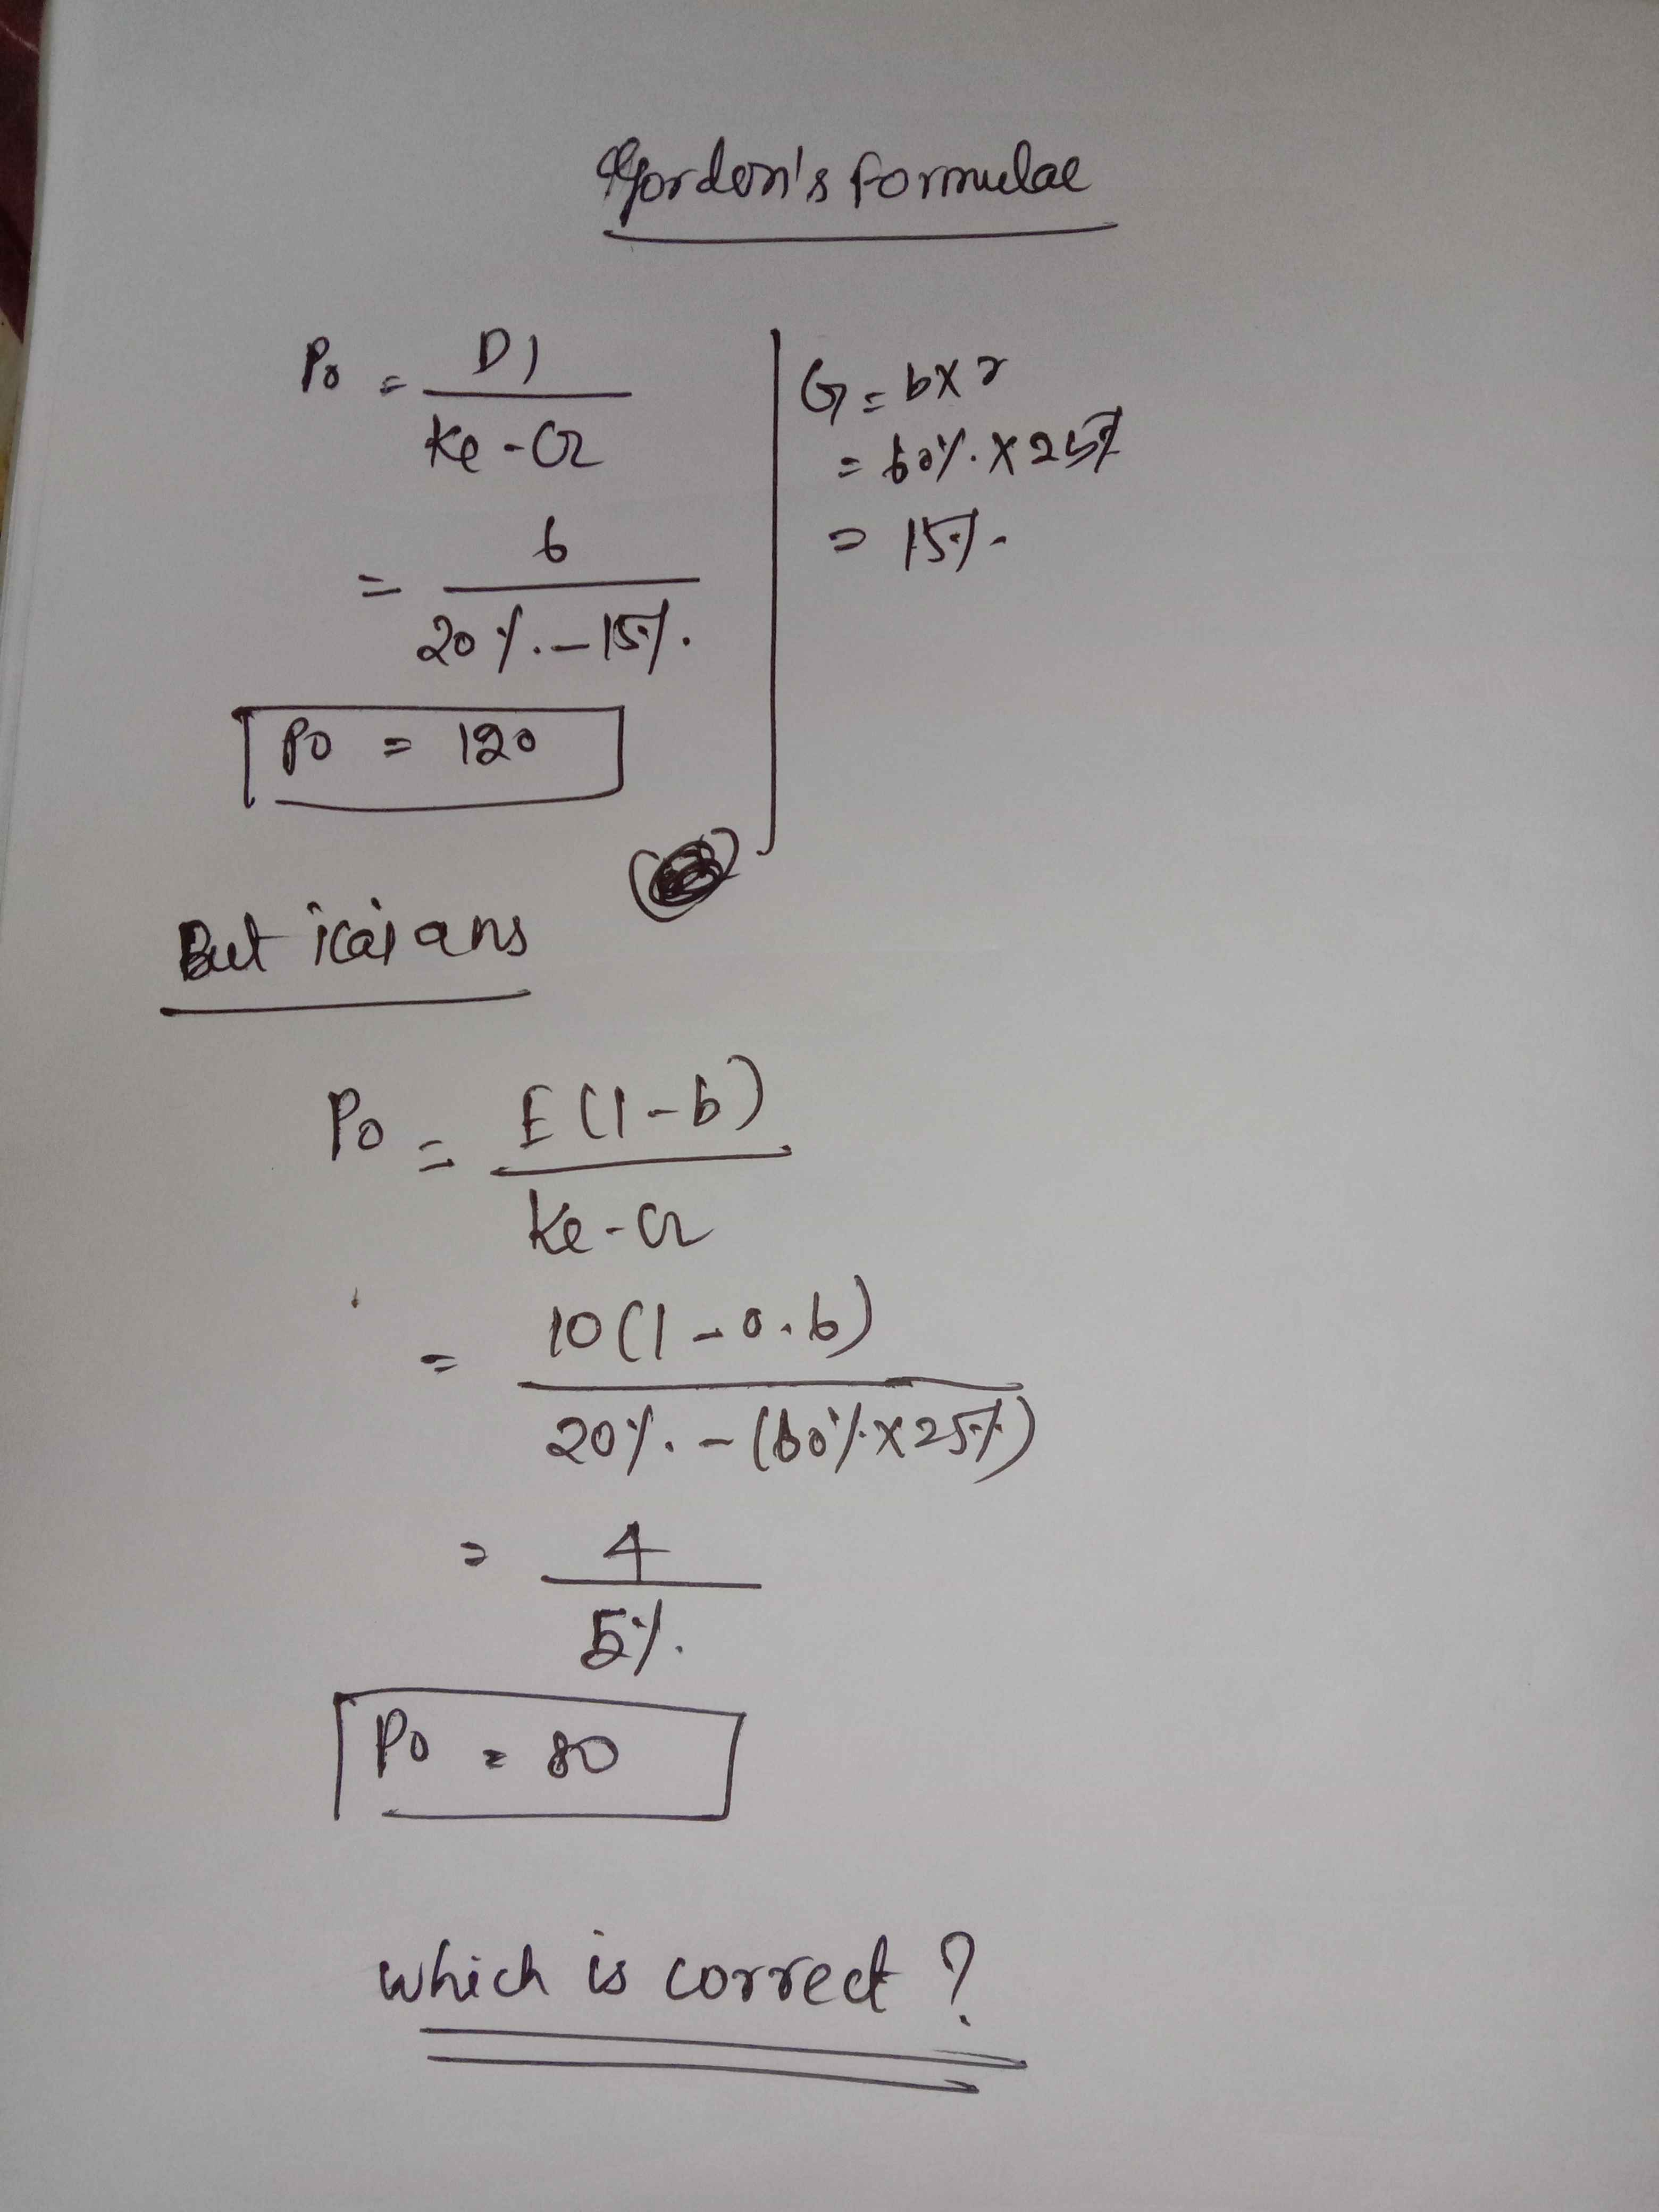 Gordon's formulae
P0 = D1
Ke - G
= 6
20% - 15%
P0 = 120
G = b x r
= 60% x 25%
= 15%
But icai ans
P0 = E(1-b)
Ke - G
= 10(1-0.6)
20% - (60% x 25%)
= 4
5%
P0 = 80
which is correct?